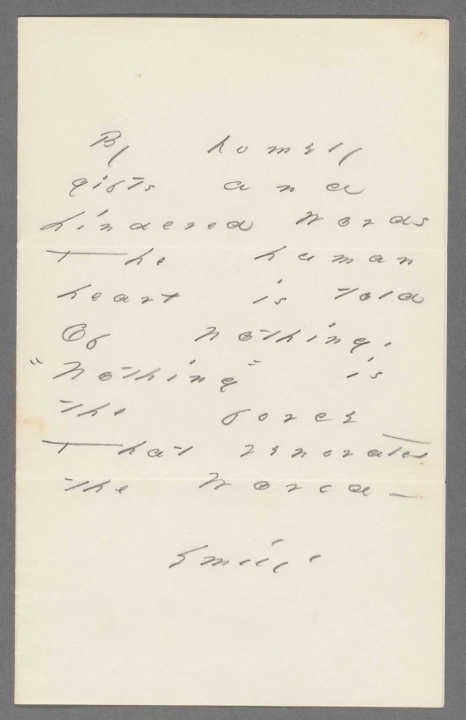 By homely
gifts and
hindered Words
The human
heart is told
Of nothing.
"Nothing" is
the force
That renovates
the World —
Emily.